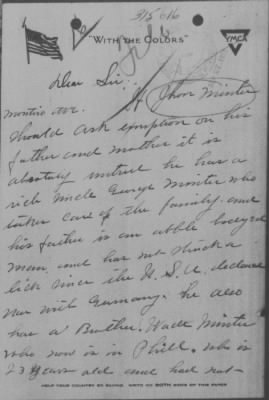 315616
"WITH THE COLORS"
YMCA
Dear Sir.
If Jhon Minter
Montiro ave.
Should ask exmption on his
father and mother it is
absolutly untrue he has a
rich Uncle George Minter who
takes care of the family. and
his father is an abble bodyed
man. and has not struck a
lick since the U.S.A. declared
war with Germany. he also
has a Brother. Wade Minter
who now is in Phill. who is
23 years old and had not
HELP YOUR COUNTRY BY SAVING. WRITE ON BOTH SIDES OF THIS PAPER